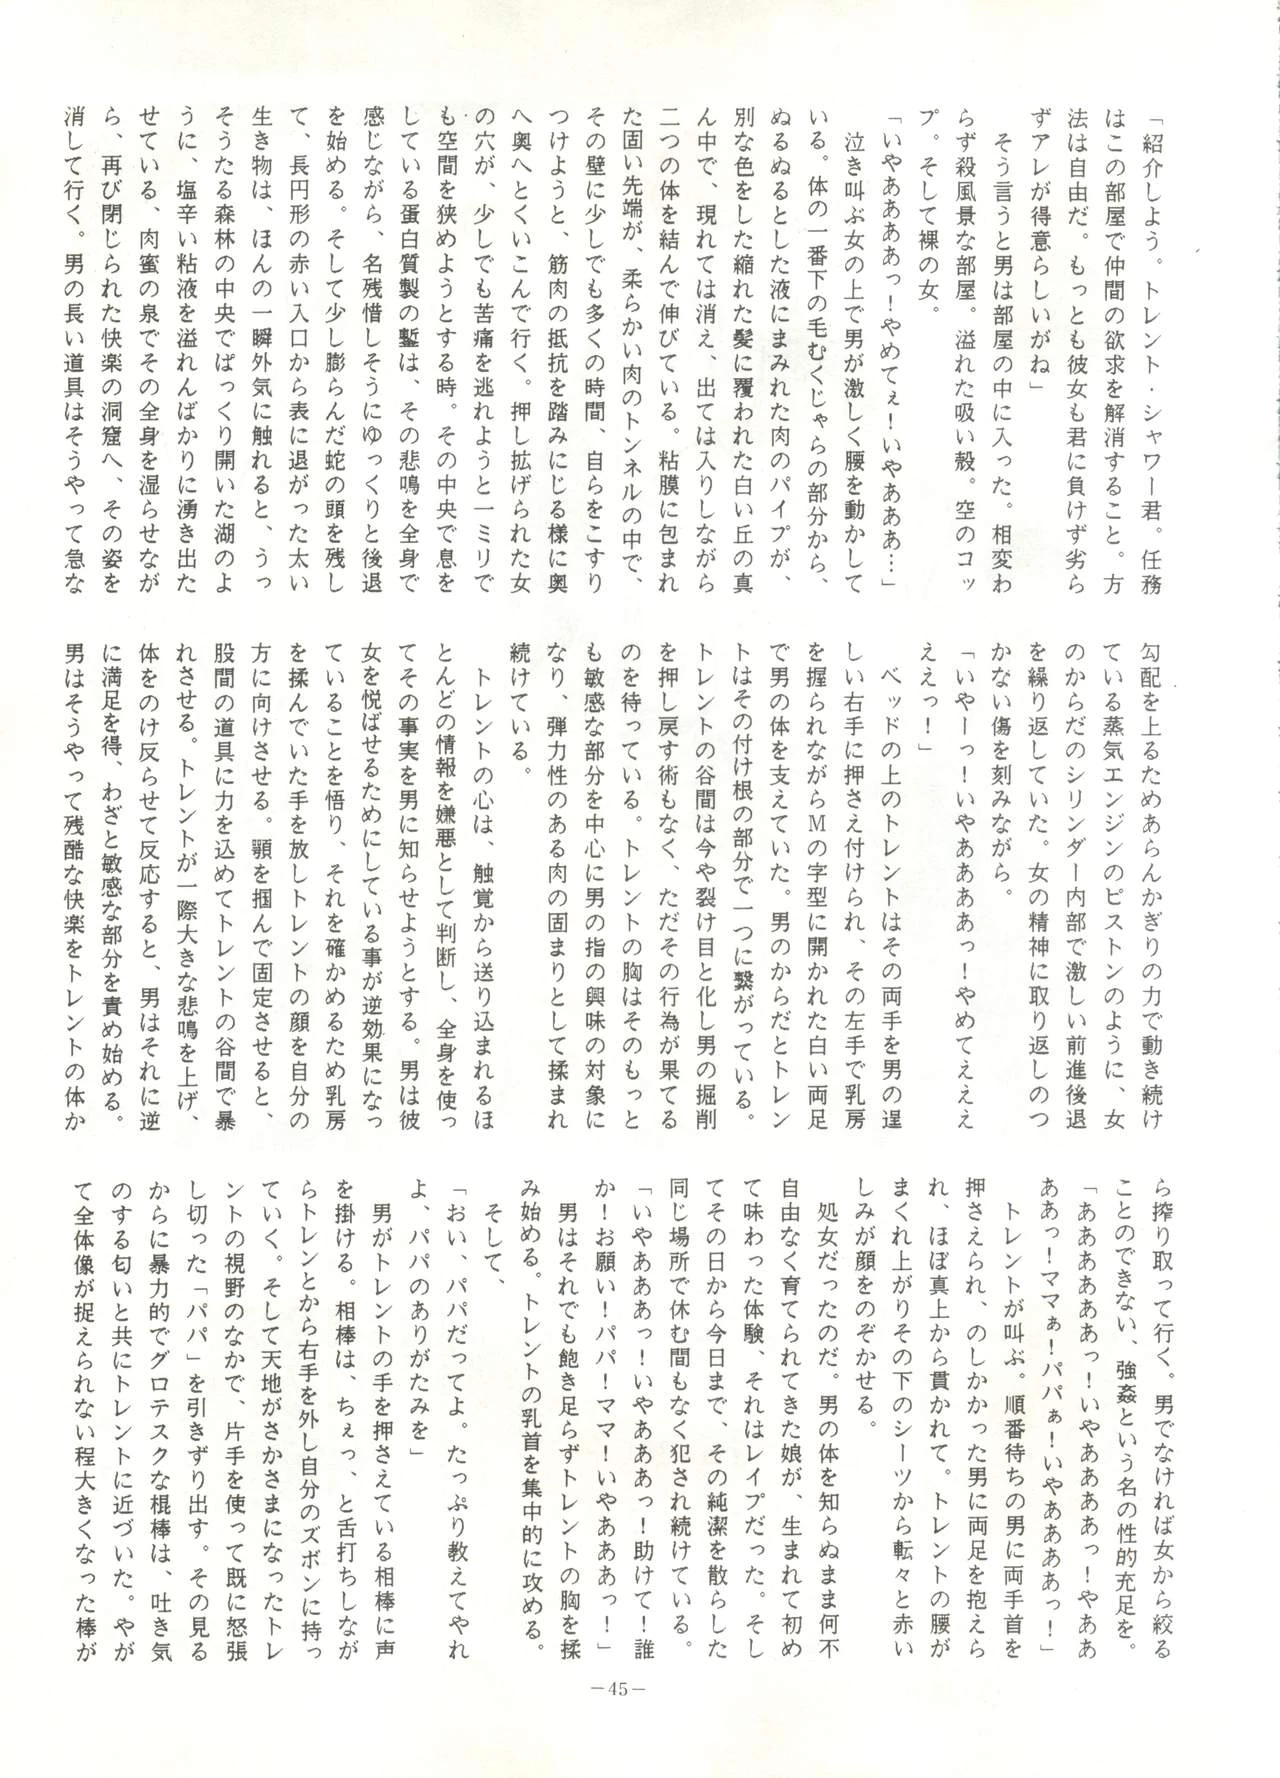 「紹介しよう。トレント・シャワー君。任務
はこの部屋で仲間の欲求を解消すること。方
法は自由だ。もっとも彼女も君に負けず劣ら
ずアレが得意らしいがね」
そう言うと男は部屋の中に入った。相変わ
らず殺風景な部屋。溢れた吸い殻。空のコッ
プ。そして裸の女。
「いやああああっ！やめてぇ！いやあああ…」
泣き叫ぶ女の上で男が激しく腰を動かして
いる。体の一番下の毛むくじゃらの部分から、
ぬるぬるとした液にまみれた肉のパイプが、
別な色をした縮れた髪に覆われた白い丘の真
ん中で、現れては消え、出ては入りしながら
二つの体を結んで伸びている。粘膜に包まれ
た固い先端が、柔らかい肉のトンネルの中で、
その壁に少しでも多くの時間、自らをこすり
つけようと、筋肉の抵抗を踏みにじる様に奥
へ奥へとくいこんで行く。押し拡げられた女
の穴が、少しでも苦痛を逃れようと一ミリで
も空間を狭めようとする時。その中央で息を
している蛋白質製の鏨は、その悲鳴を全身で
感じながら、名残惜しそうにゆっくりと後退
を始める。そして少し膨らんだ蛇の頭を残し
て、長円形の赤い入口から表に退がった太い
生き物は、ほんの一瞬外気に触れると、うっ
そうたる森林の中央でぱっくり開いた湖のよ
うに、塩辛い粘液を溢れんばかりに湧き出た
せている、肉蜜の泉でその全身を湿らせなが
ら、再び閉じられた快楽の洞窟へ、その姿を
消して行く。男の長い道具はそうやって急な
勾配を上るためあらんかぎりの力で動き続け
ている蒸気エンジンのピストンのように、女
のからだのシリンダー内部で激しい前進後退
を繰り返していた。女の精神に取り返しのつ
かない傷を刻みながら。
「いやーっ！いやああああっ！やめてえええ
ええっ！」
ベッドの上のトレントはその両手を男の逞
しい右手に押さえ付けられ、その左手で乳房
を握られながらＭの字型に開かれた白い両足
で男の体を支えていた。男のからだとトレン
トはその付け根の部分で一つに繋がっている。
トレントの谷間は今や裂け目と化し男の掘削
を押し戻す術もなく、ただその行為が果てる
のを待っている。トレントの胸はそのもっと
も敏感な部分を中心に男の指の興味の対象に
なり、弾力性のある肉の固まりとして揉まれ
続けている。
トレントの心は、触覚から送り込まれるほ
とんどの情報を嫌悪として判断し、全身を使っ
てその事実を男に知らせようとする。男は彼
女を悦ばせるためにしている事が逆効果になっ
ていることを悟り、それを確かめるため乳房
を揉んでいた手を放しトレントの顔を自分の
方に向けさせる。顎を掴んで固定させると、
股間の道具に力を込めてトレントの谷間で暴
れさせる。トレントが一際大きな悲鳴を上げ、
体をのけ反らせて反応すると、男はそれに逆
に満足を得、わざと敏感な部分を責め始める。
男はそうやって残酷な快楽をトレントの体か
ら搾り取って行く。男でなければ女から絞る
ことのできない、強姦という名の性的充足を。
「ああああああっ！いやああああっ！やああ
ああっ！ママぁ！パパぁ！いやああああっ！」
トレントが叫ぶ。順番待ちの男に両手首を
押さえられ、のしかかった男に両足を抱えら
れ、ほぼ真上から貫かれて。トレントの腰が
まくれ上がりその下のシーツから転々と赤い
しみが顔をのぞかせる。
処女だったのだ。男の体を知らぬまま何不
自由なく育てられてきた娘が、生まれて初め
て味わった体験、それはレイプだった。そし
てその日から今日まで、その純潔を散らした
同じ場所で休む間もなく犯され続けている。
「いやあああっ！いやあああっ！助けて！誰
か！お願い！パパ！ママ！いやあああっ！」
男はそれでも飽き足らずトレントの胸を揉
み始める。トレントの乳首を集中的に攻める。
そして、
「おい、パパだってよ。たっぷり教えてやれ
よ、パパのありがたみを」
男がトレントの手を押さえている相棒に声
を掛ける。相棒は、ちぇっ、と舌打ちしなが
らトレンとから右手を外し自分のズボンに持っ
ていく。そして天地がさかさまになったトレ
ントの視野のなかで、片手を使って既に怒張
し切った「パパ」を引きずり出す。その見る
からに暴力的でグロテスクな棍棒は、吐き気
のする匂いと共にトレントに近づいた。やが
て全体像が捉えられない程大きくなった棒が
－45－